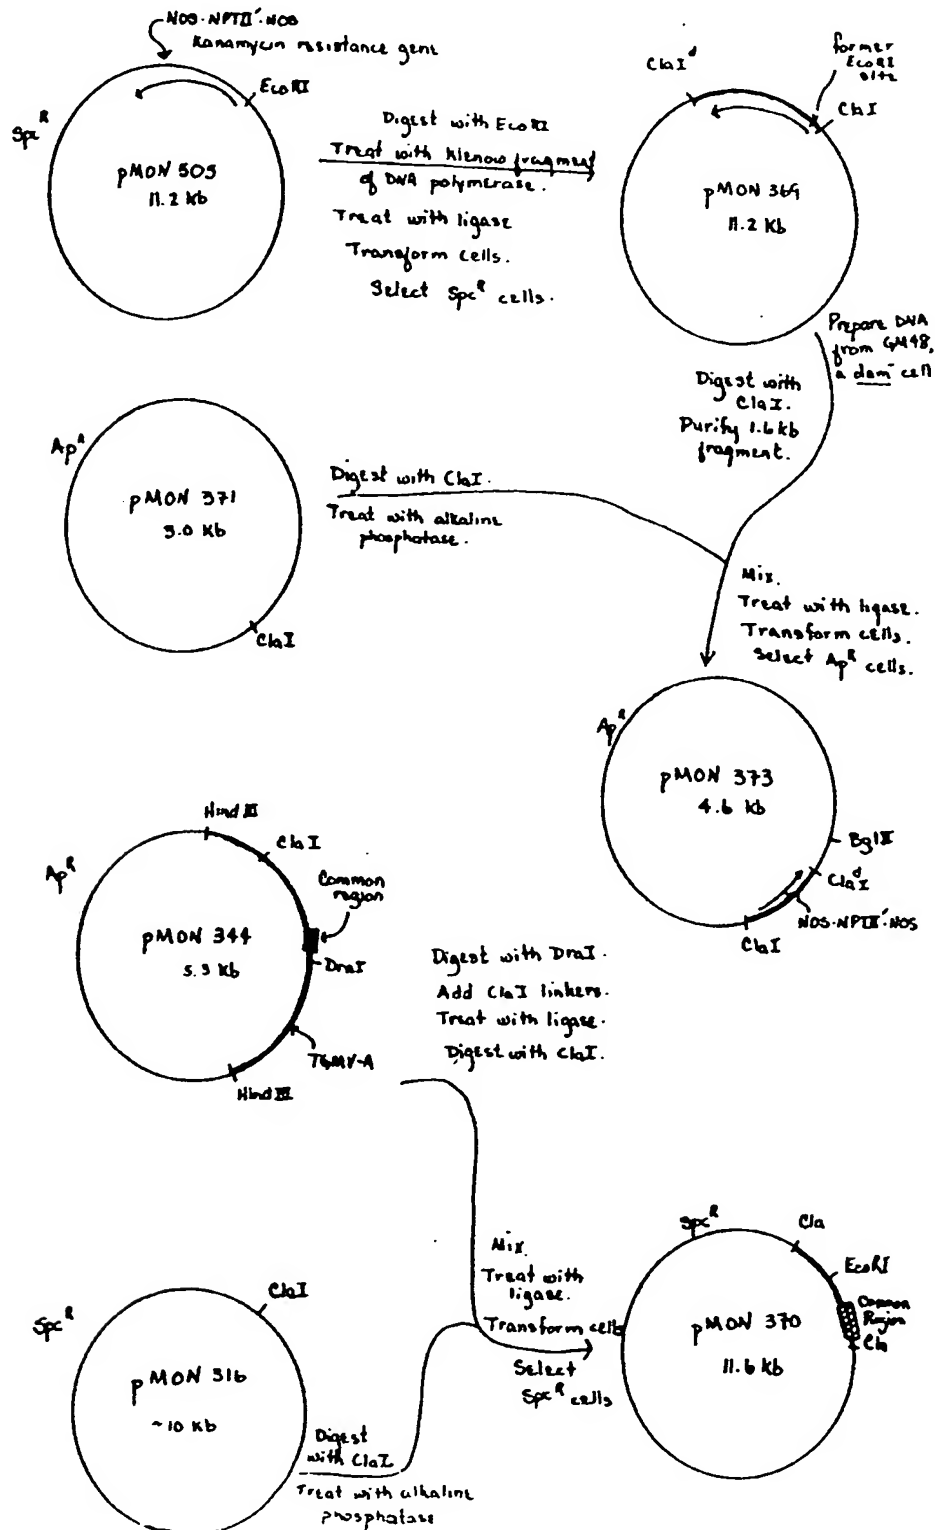 NOS-NPTII'-NOS
Kanamycin resistance gene
EcoRI
Spc R
pMON 505
11.2 Kb
Digest with EcoRI
Treat with Klenow fragment
of DNA polymerase.
Treat with ligase
Transform cells.
Select Spc R cells.
ClaI d
former
EcoRI
site
ClaI
pMON 369
11.2 Kb
Prepare DNA
from GM48,
a dam- cell
Digest with
ClaI.
Purify 1.6 kb
fragment.
Ap R
pMON 371
3.0 Kb
ClaI
Digest with ClaI.
Treat with alkaline
phosphatase.
Mix.
Treat with ligase.
Transform cells.
Select Ap R cells.
Ap R
pMON 373
4.6 kb
Bgl II
Cla d I
NOS-NPTII'-NOS
ClaI
Hind III
ClaI
Ap R
Common
region
pMON 344
5.3 Kb
DraI
TGMV-A
Hind III
Digest with DraI.
Add ClaI linkers.
Treat with ligase.
Digest with ClaI.
Mix.
Treat with
ligase.
Transform cells
Select
Spc R cells
ClaI
Spc R
pMON 316
~10 Kb
Digest
with ClaI
Treat with alkaline
phosphatase
Spc R
Cla
EcoRI
Common
Region
Cla
pMON 370
11.6 kb